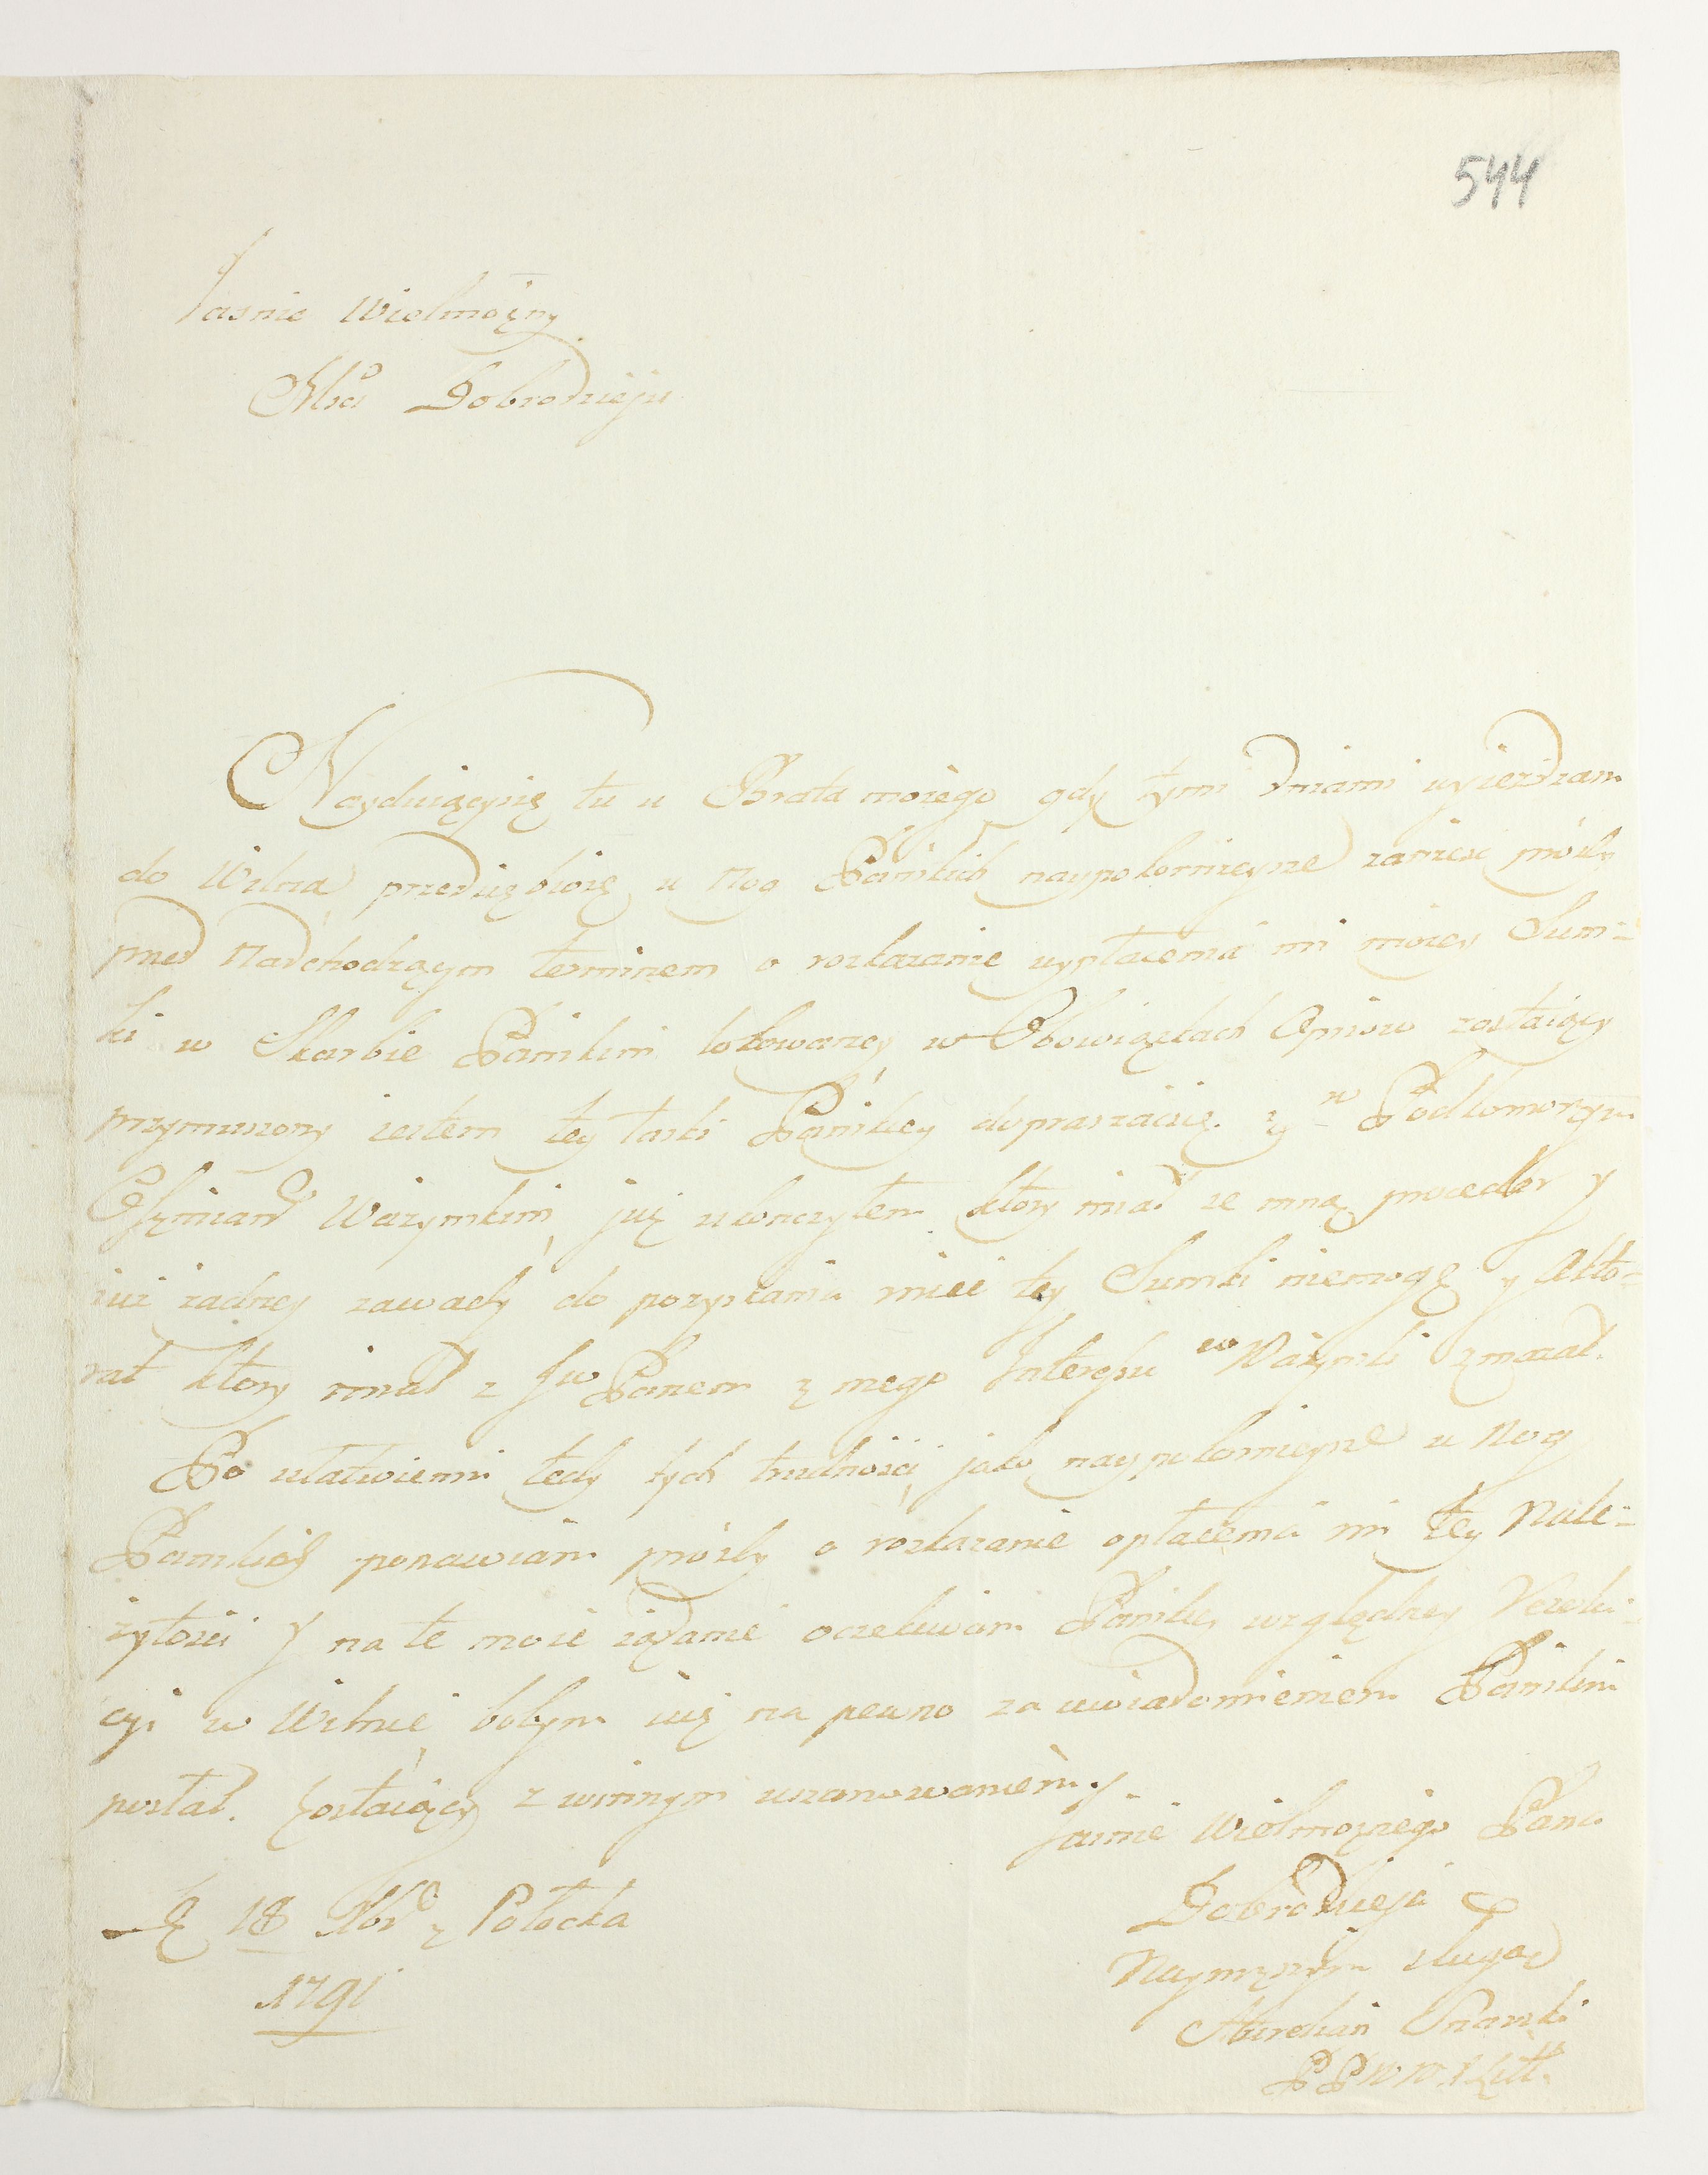 544
Jasnie Wielmożny
Mci Dobrodzieju
Nayduięcysię tu u Brata moiego gdy tymi dniami wyieżdzam
do Wilna przedsiębiorę u Nog Pańskich naypokornieysze zanieść prózby
przed Nadchodzącym terminem o rozkazanie wypłacenia mi moiey Sum=
ki w Skarbie Pańskim lokowaney w Obowiązkach Oycow zostaiący
przymuszony iestem tey łaski Pańskiey dopraszaćsię z W Podkomorzym
Oszmian Ważynskim już ukonczyłem który miał ze mną proceder y
iuż żadney zawady do pozyskania mieć tey Sumki niemogę y Akto=
rat ktory miał z JW Panem z mego Interesu W Ważynski zmazał.
Po ułatwieniu tedy tych trudności jako naypokornieysze u Nog
Pańskich ponawiam prózby o rozkazanie opłacenia mi tey Nale=
żytości y na te moie żądanie oczekiwam Pańskiey względney Rezolu=
cyi w Wilnie bobym iuż na pewno za uwiadomieniem Pańskim
posłał. Zostaiący z winnym uszanowaniem
Jasnie Wielmożnego Pana
Dobrodzieja
Nayniższym sługą
Aurelian
D 18 Nbr z Połocka
1791